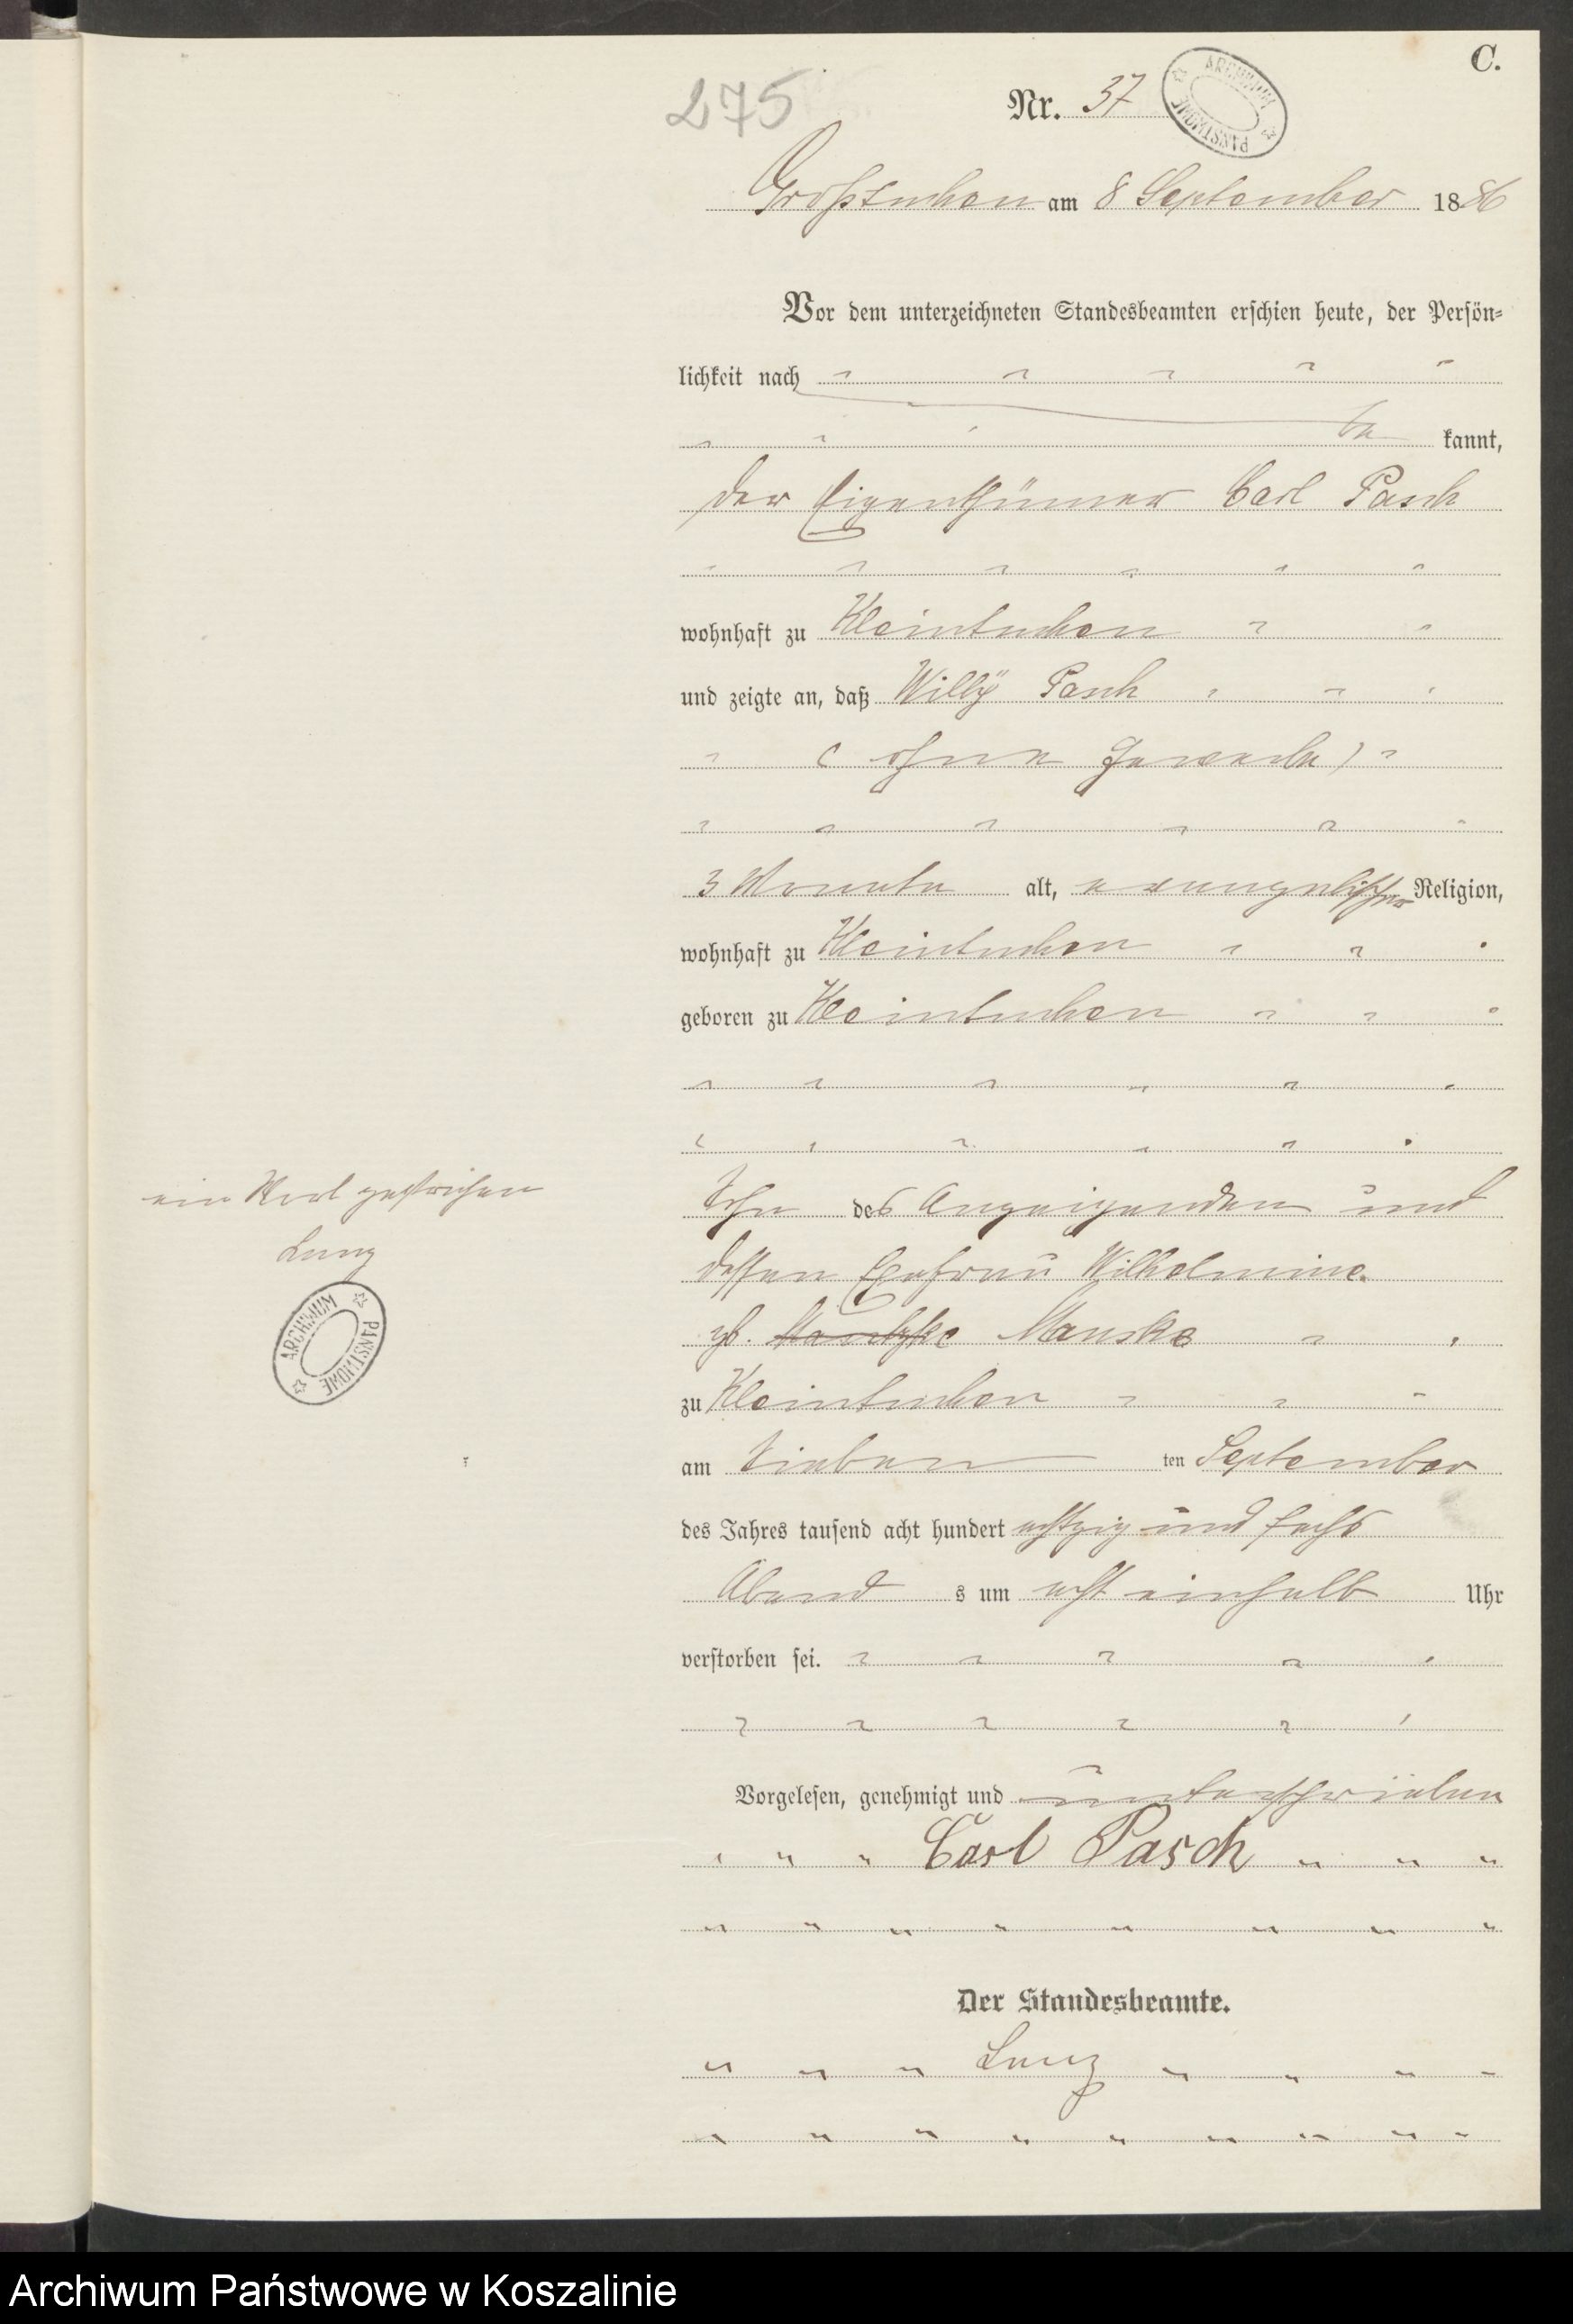 C.
275
Nr. 37
ARCHIWUM PAŃSTWOWE
Großtuchen am 8 September 1886
Vor dem unterzeichneten Standesbeamten erschien heute, der Persön-
lichkeit nach
be kannt,
der Eigenthümer Carl Pasch
wohnhaft zu Kleintuchen
und zeigte an, daß Willÿ Pasch
( ohne Gewerbe )
3 Monate alt, evangelischer Religion,
wohnhaft zu Kleintuchen
geboren zu Kleintuchen
ein Wort gestrichen
ARCHIWUM PAŃSTWOWE
Sohn des Anzeigenden und
dessen Ehefrau Wilhelmine
geb. Manske
zu Kleintuchen
am sieben ten September
des Jahres tausend acht hundert achtzig und sechs
Abend s um acht einhalb Uhr
verstorben sei.
Vorgelesen, genehmigt und unterschrieben
Carl Pasch
Der Standesbeamte.
Archiwum Państwowe w Koszalinie